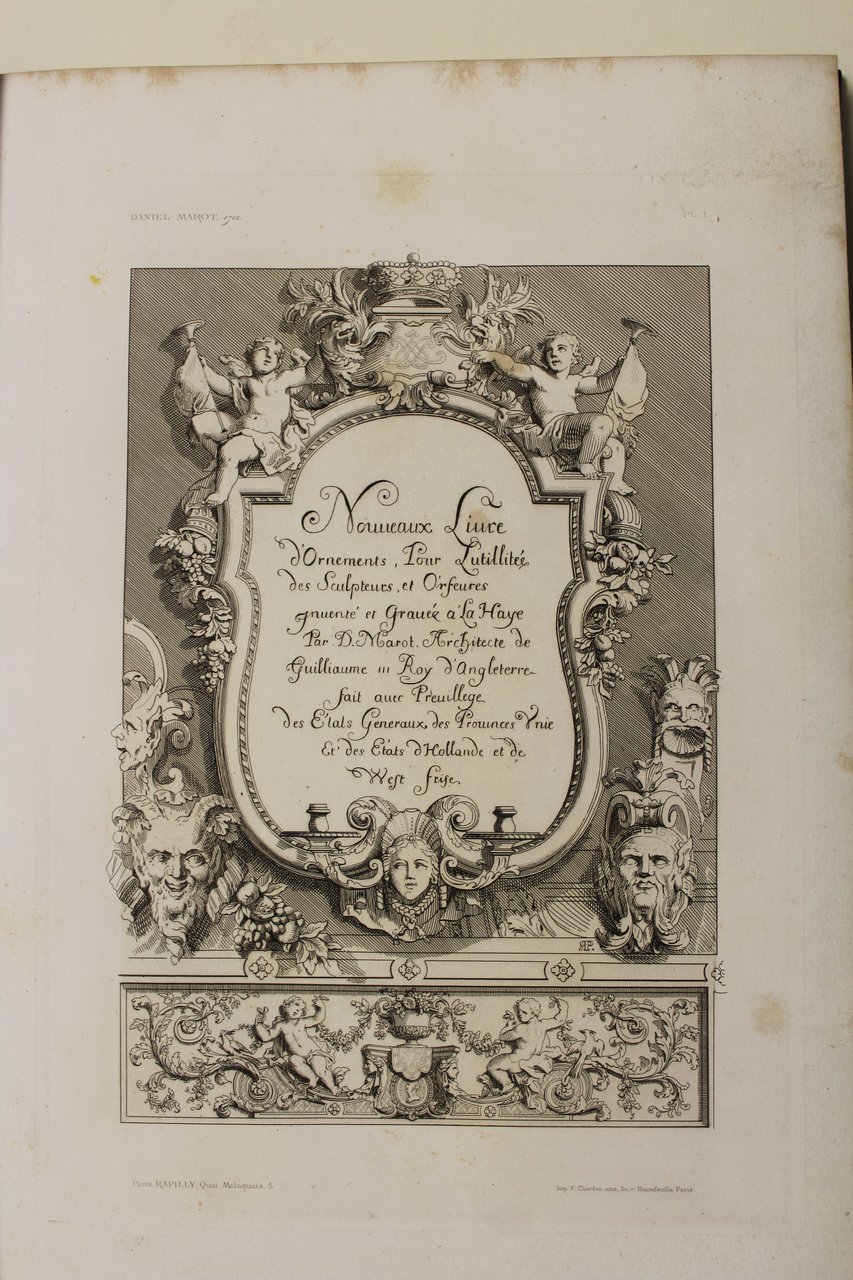 DANIEL MAROT, 1712.
PL. 1
Nouueaux Liure
d'Ornements, Pour Lutillitée
des Sculpteurs, et Orfeures
jnuenté et Gravéé a La Haye
Par D. Marot. Architecte de
Guilliaume III Roy d'Angleterre
fait auec Preuillege
des Etats Generaux des Prouinces Vnie
Et des Etats d'Hollande et de
West frise.
RP.
Paris, RAPILLY, Quai Malaquais, 5.
Imp. F. Chardon ainé, r. Hautefeuille, Paris.